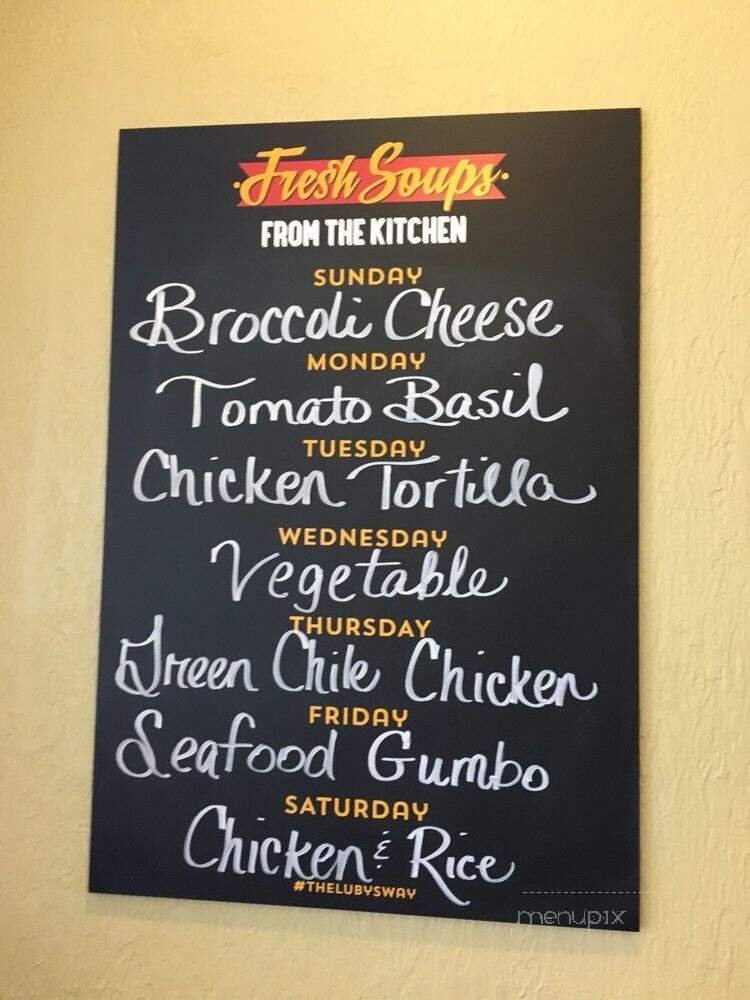 Fresh Soups
FROM THE KITCHEN
SUNDAY
Broccoli Cheese
MONDAY
Tomato Basil
TUESDAY
Chicken Tortilla
WEDNESDAY
Vegetable
THURSDAY
Green Chile Chicken
FRIDAY
Seafood Gumbo
SATURDAY
Chicken & Rice
#THELUBYSWAY
menupix